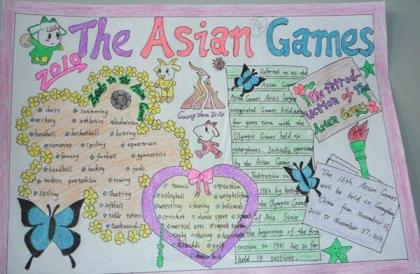 The Asian Games
2010
chess swimming
archery athletics badminton
baseball basketball boxing
canoeing cycling equestrian
fencing football gymnastics
handball hockey judo
modern pentathlon rowing
sailing shooting
softball
table tennis
taekwondo
tennis triathlon
volleyball weightlifting
wrestling boxing
cricket dance sport
martial arts
shooting
golf
Referred to as the
Asian Games, Asia's largest
integrated Games held every
for years term with the
Olympic Games held in
Initially sponsored
by the Asian Games
Federation
the Olympic Council
of Asia. Since
the beginning of the first
session to 1951 has so far
held 15 sessions.
The Introd-
uction of The
Asian Games
The 16th Asian Games
will be held in
China from November 12,
2010 to November 27, 2010